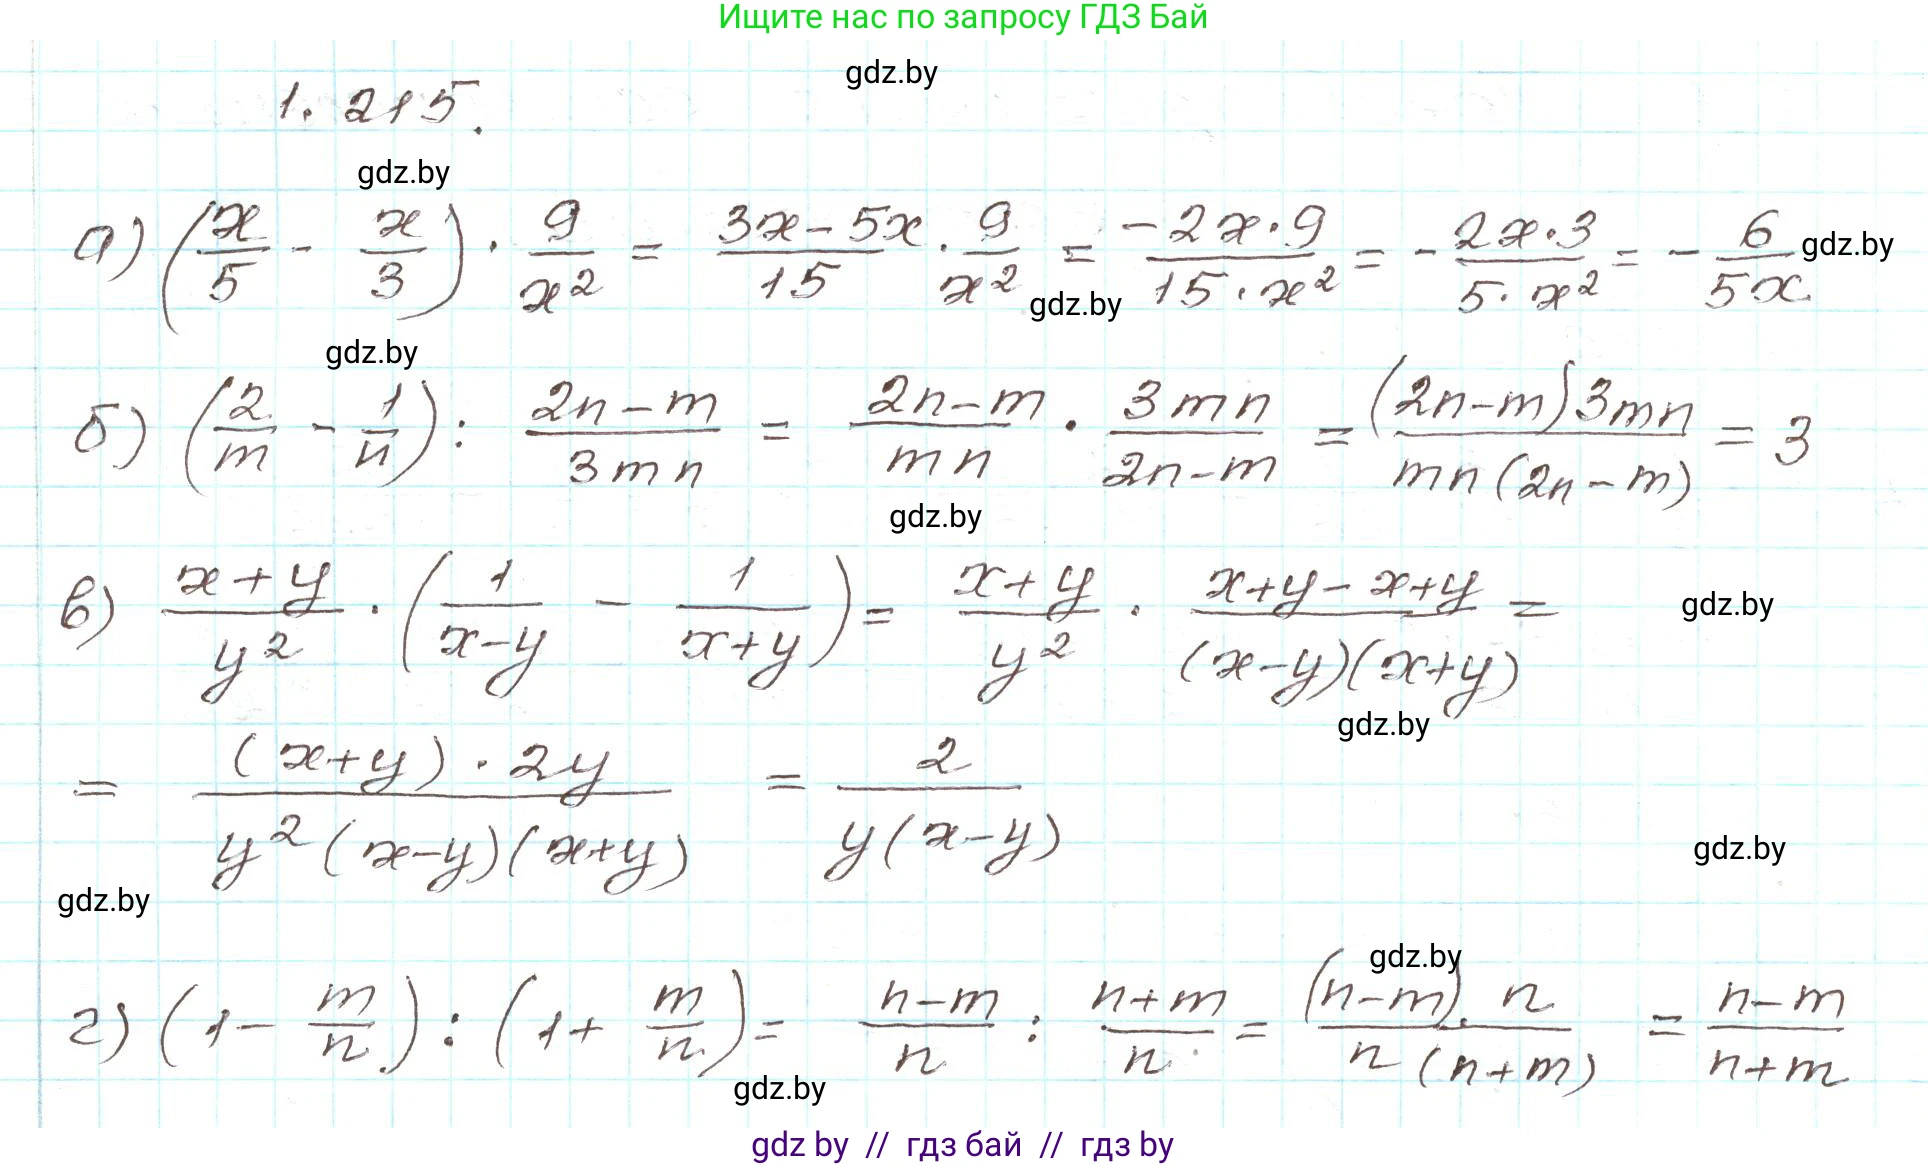 Ищите нас по запросу ГДЗ Бай
gdz.by
1. 215.
gdz.by
а) (x/5 - x/3) · 9/x² = (3x - 5x)/15 · 9/x² = (-2x·9)/(15·x²) = - (2x·3)/(5·x²) = - 6/(5x) gdz.by
gdz.by
gdz.by
б) (2/m - 1/n) : (2n - m)/(3mn) = (2n - m)/(mn) · (3mn)/(2n - m) = ((2n - m)3mn)/(mn(2n - m)) = 3
gdz.by
в) (x + y)/y² · (1/(x - y) - 1/(x + y)) = (x + y)/y² · (x + y - x + y)/((x - y)(x + y)) = gdz.by
gdz.by
= ((x + y) · 2y)/(y²(x - y)(x + y)) = 2/(y(x - y))
gdz.by
gdz.by
gdz.by
г) (1 - m/n) : (1 + m/n) = (n - m)/n : (n + m)/n = ((n - m) · n)/(n(n + m)) = (n - m)/(n + m)
gdz.by
gdz by // гдз бай // гдз by